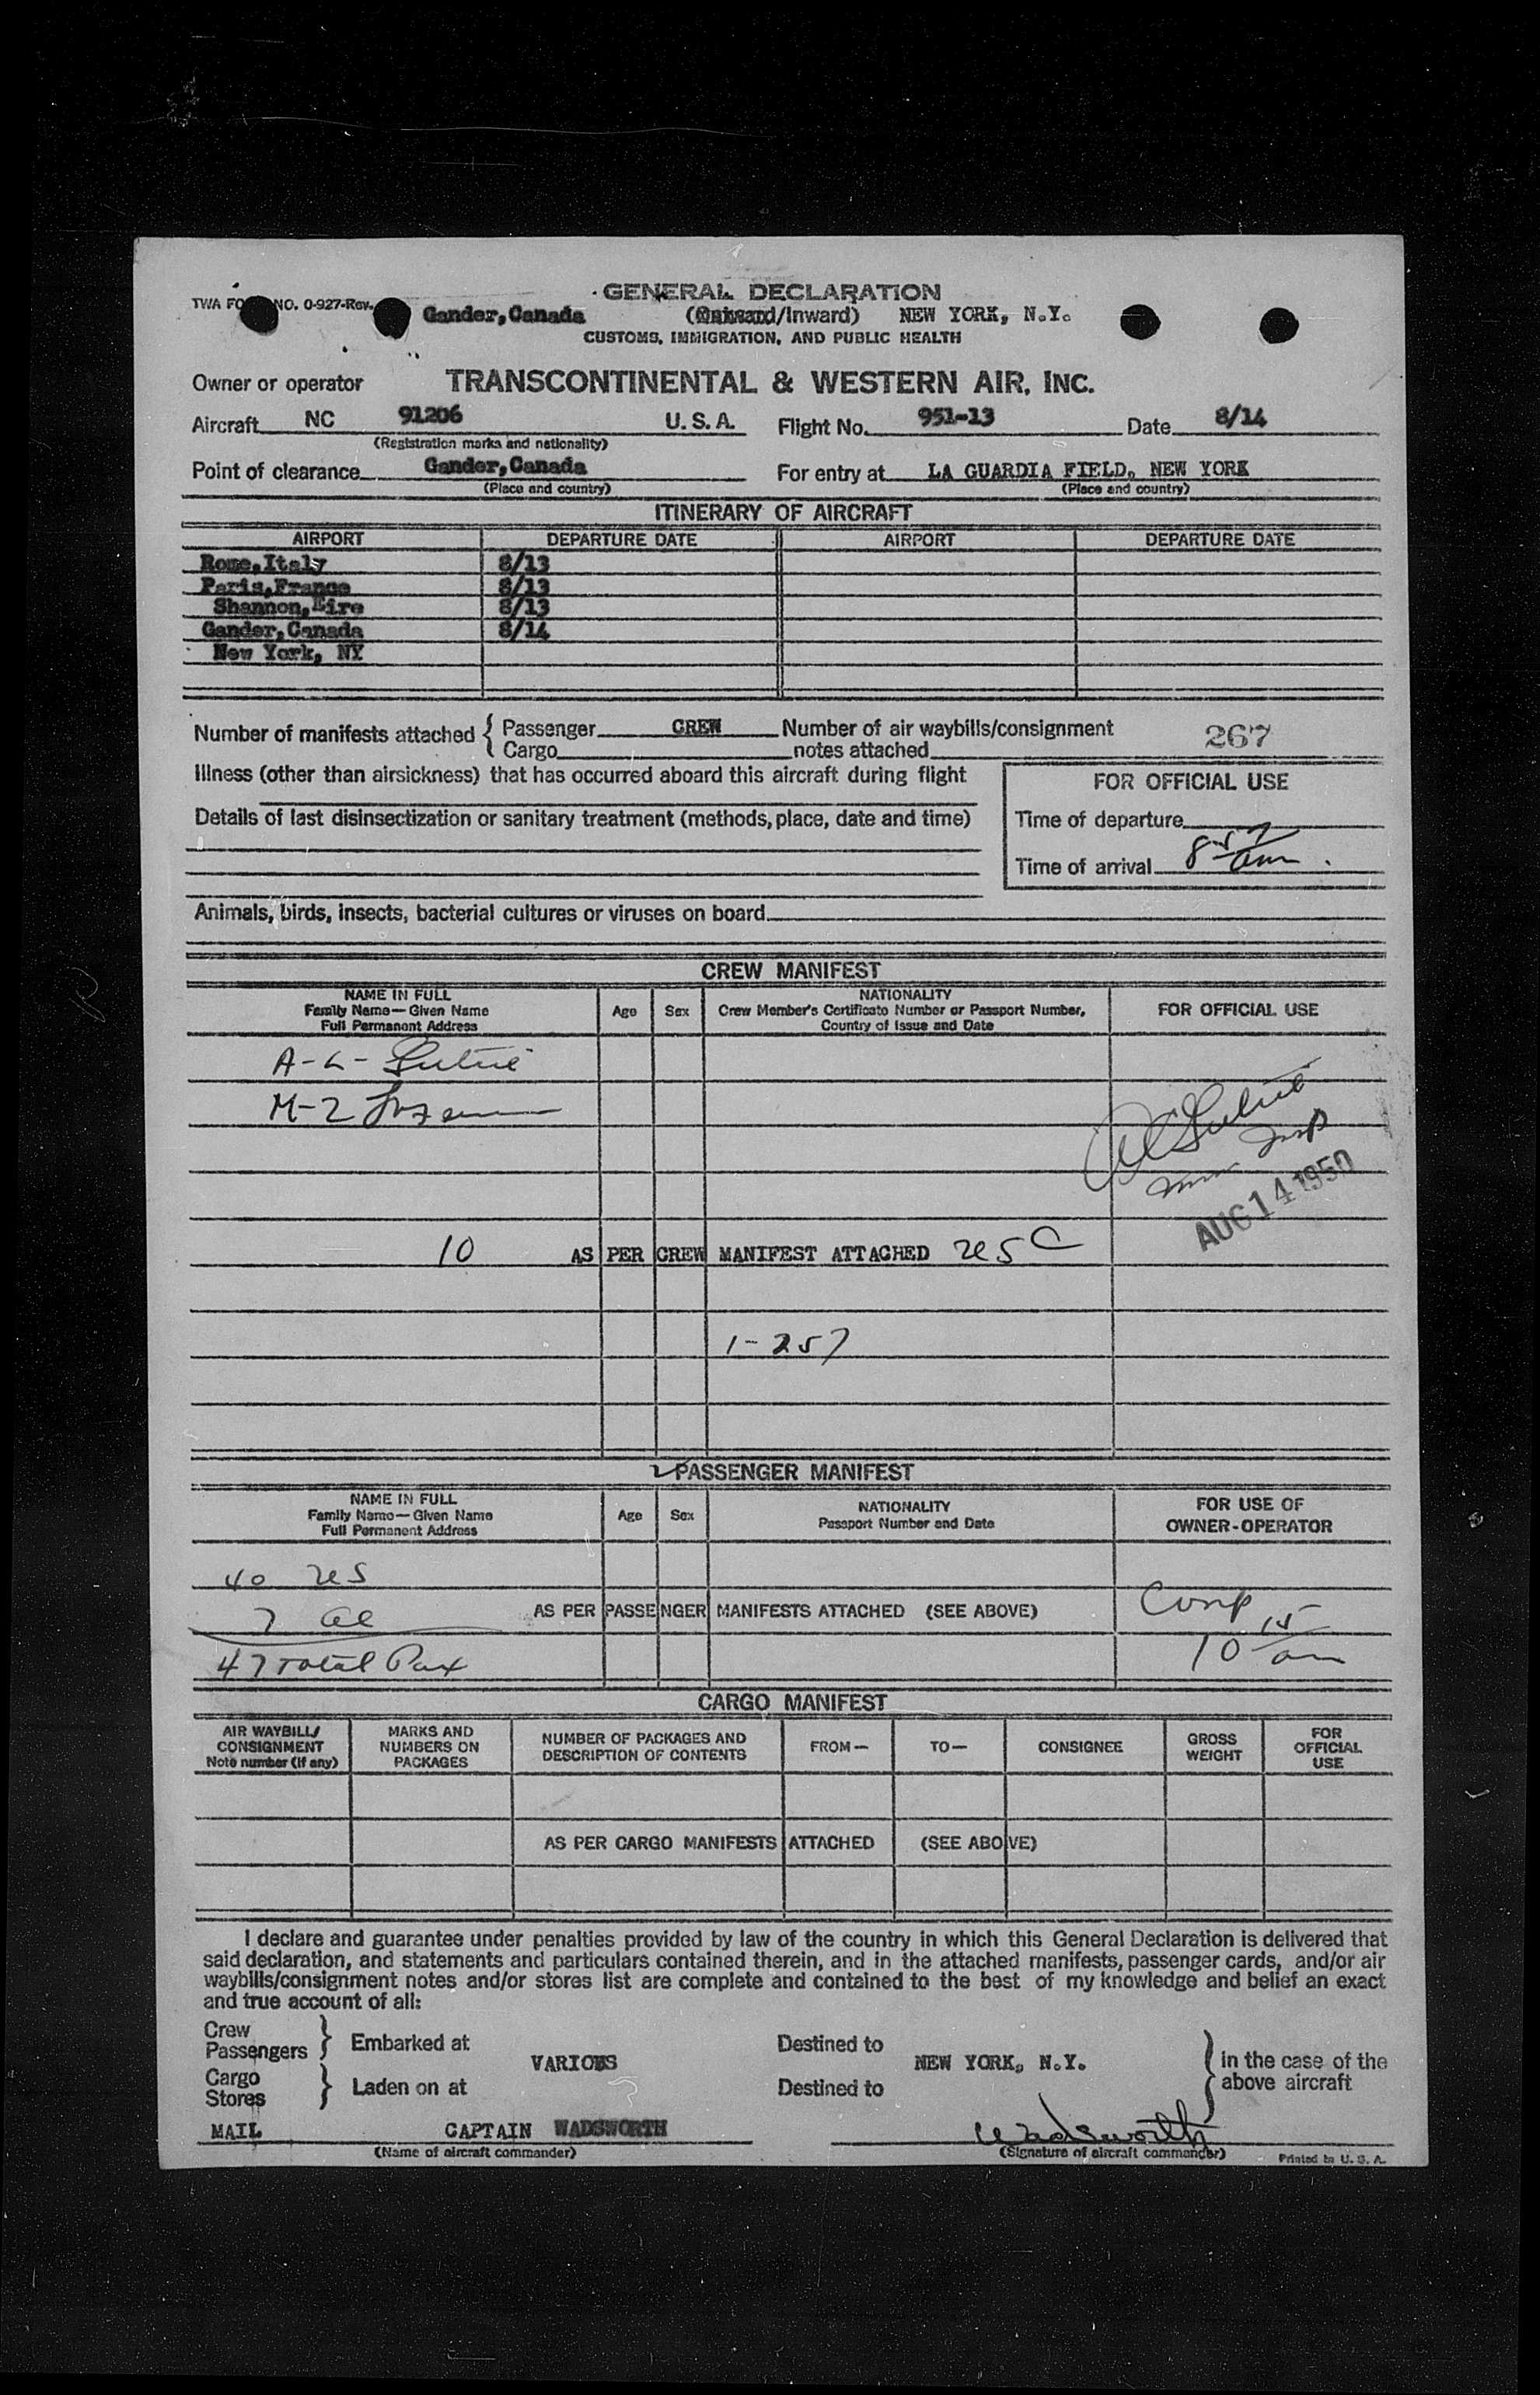 GENERAL DECLARATION
TWA FO NO. 0-927-Rev. Gander, Canada (Outward/Inward) NEW YORK, N.Y.
CUSTOMS, IMMIGRATION, AND PUBLIC HEALTH
Owner or operator TRANSCONTINENTAL & WESTERN AIR, INC.
Aircraft NC 91206 U. S. A. Flight No. 951-13 Date 8/14
(Registration marks and nationality)
Point of clearance Gander, Canada For entry at LA GUARDIA FIELD, NEW YORK
(Place and country) (Place and country)
ITINERARY OF AIRCRAFT
AIRPORT DEPARTURE DATE AIRPORT DEPARTURE DATE
Rome, Italy 8/13
Paris, France 8/13
Shannon, Eire 8/13
Gander, Canada 8/14
New York, NY
Number of manifests attached { Passenger CREW Number of air waybills/consignment 267
Cargo notes attached
Illness (other than airsickness) that has occurred aboard this aircraft during flight
FOR OFFICIAL USE
Details of last disinsectization or sanitary treatment (methods, place, date and time)
Time of departure
Time of arrival 8 57 am
Animals, birds, insects, bacterial cultures or viruses on board
CREW MANIFEST
NAME IN FULL
Family Name—Given Name
Full Permanent Address
Age Sex
NATIONALITY
Crew Member's Certificate Number or Passport Number,
Country of Issue and Date
FOR OFFICIAL USE
A-L-
M-2
AUG 14 1950
10 AS PER CREW MANIFEST ATTACHED USC
1-257
PASSENGER MANIFEST
NAME IN FULL
Family Name—Given Name
Full Permanent Address
Age Sex
NATIONALITY
Passport Number and Date
FOR USE OF
OWNER-OPERATOR
40 US
7 al AS PER PASSENGER MANIFESTS ATTACHED (SEE ABOVE) Comp
47 Total Pax 10 15 am
CARGO MANIFEST
AIR WAYBILL/
CONSIGNMENT
Note number (if any)
MARKS AND
NUMBERS ON
PACKAGES
NUMBER OF PACKAGES AND
DESCRIPTION OF CONTENTS
FROM— TO— CONSIGNEE
GROSS
WEIGHT
FOR
OFFICIAL
USE
AS PER CARGO MANIFESTS ATTACHED (SEE ABOVE)
I declare and guarantee under penalties provided by law of the country in which this General Declaration is delivered that
said declaration, and statements and particulars contained therein, and in the attached manifests, passenger cards, and/or air
waybills/consignment notes and/or stores list are complete and contained to the best of my knowledge and belief an exact
and true account of all:
Crew
Passengers } Embarked at VARIOUS Destined to NEW YORK, N.Y. } in the case of the
above aircraft
Cargo
Stores } Laden on at Destined to
MAIL CAPTAIN WADSWORTH Wadsworth
(Name of aircraft commander) (Signature of aircraft commander) Printed in U. S. A.